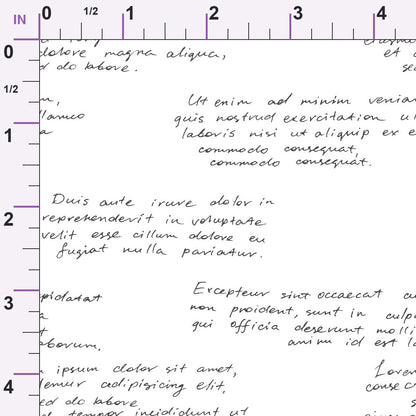 IN 0 1/2 1 2 3 4
0
1/2
1
2
3
4
dolore magna aliqua,
ed do labore.
et
Ut enim ad minim venia
quis nostrud exercitation ul
laboris nisi ut aliquip ex e
commodo consequat,
commodo consequat.
llamco
Duis aute irure dolor in
reprehenderit in voluptate
velit esse cillum dolore eu
fugiat nulla pariatur.
pidatat
Excepteur sint occaecat cu
non proident, sunt in culp
qui officia deserunt molli
anim id est la
borum.
ipsum dolor sit amet,
lemur adipisicing elit,
ed do labore
tempor incididunt ut
Lorem
conse